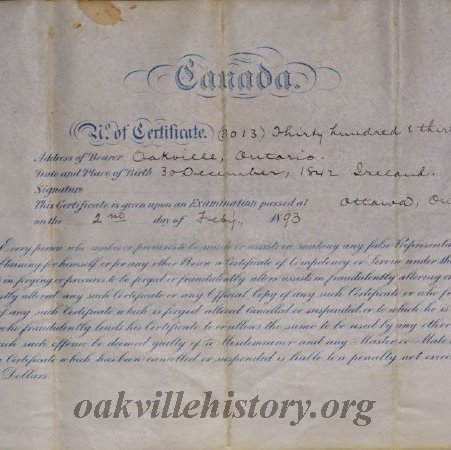 Canada.
No. of Certificate. (3013) Thirty hundred & thirt
Address of Bearer Oakville, Ontario.
Date and Place of Birth 30 December, 1842 Ireland.
Signature
This Certificate is given upon an Examination passed at Ottawa, On
on the 2nd day of Feby, 1893
Every person who makes or procures to be made or assists in making any false Representati
btaining for himself or for any other Person a Certificate of Competency or Service under the
s in forging or procures to be forged or fraudulently alters assists in fraudulently altering
ntly altered any such Certificate or any Official Copy of any such Certificate or who fr
of any such Certificate which is forged altered cancelled or suspended or to which he is
who fraudulently lends his Certificate to or allows the same to be used by any other
ach such offence be deemed guilty of a Misdemeanor and any Master or Mate
Certificate which has been cancelled or suspended is liable to a penalty not excee
Dollars.
oakvillehistory.org